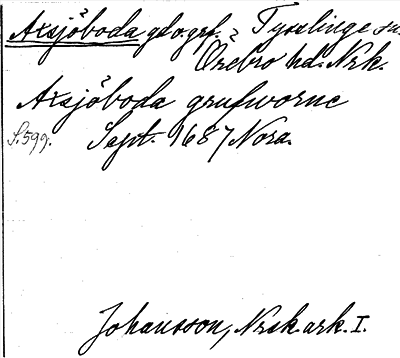 Axsjöboda geogrf. Tysslinge sn.
Örebro hd. Nrk.
Axsjöboda grufworne
S. 599. Sept. 1687 Nora.
Johansson, Nrsk ark. I.